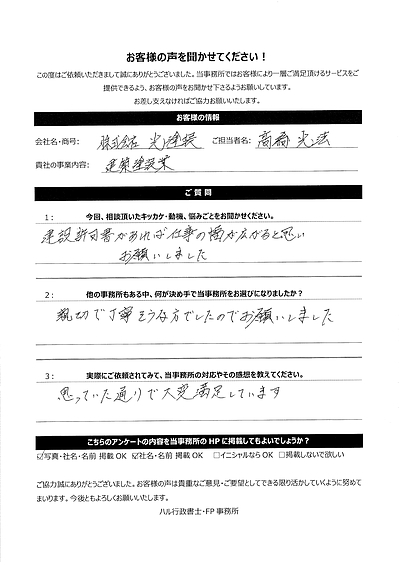 お客様の声を聞かせてください！
この度はご依頼いただきまして誠にありがとうございました。当事務所ではお客様により一層ご満足頂けるサービスをご
提供できるよう、お客様の声をお聞かせ下さるようお願いしています。
お差し支えなければご協力お願いいたします。
お客様の情報
会社名・商号: 株式会社 光塗装 ご担当者名: 高橋 光法
貴社の事業内容: 建築塗装業
ご 質 問
1： 今回、相談頂いたキッカケ・動機、悩みごとをお聞かせください。
建設許可書があれば仕事の幅が広がると思い
お願いしました
2： 他の事務所もある中、何が決め手で当事務所をお選びになりましたか？
親切で丁寧そうな方でしたのでお願いしました
3： 実際にご依頼されてみて、当事務所の対応やその感想を教えてください。
思っていた通りで大変満足しています
こちらのアンケートの内容を当事務所の HP に掲載してもよいでしょうか？
☑写真・社名・名前 掲載 OK ☑社名・名前 掲載 OK □イニシャルなら OK □掲載しないで欲しい
ご協力誠にありがとうございました。お客様の声は貴重なご意見・ご要望としてできる限り活かしていくように努めて
まいります。今後ともよろしくお願いいたします。
ハル行政書士・FP 事務所